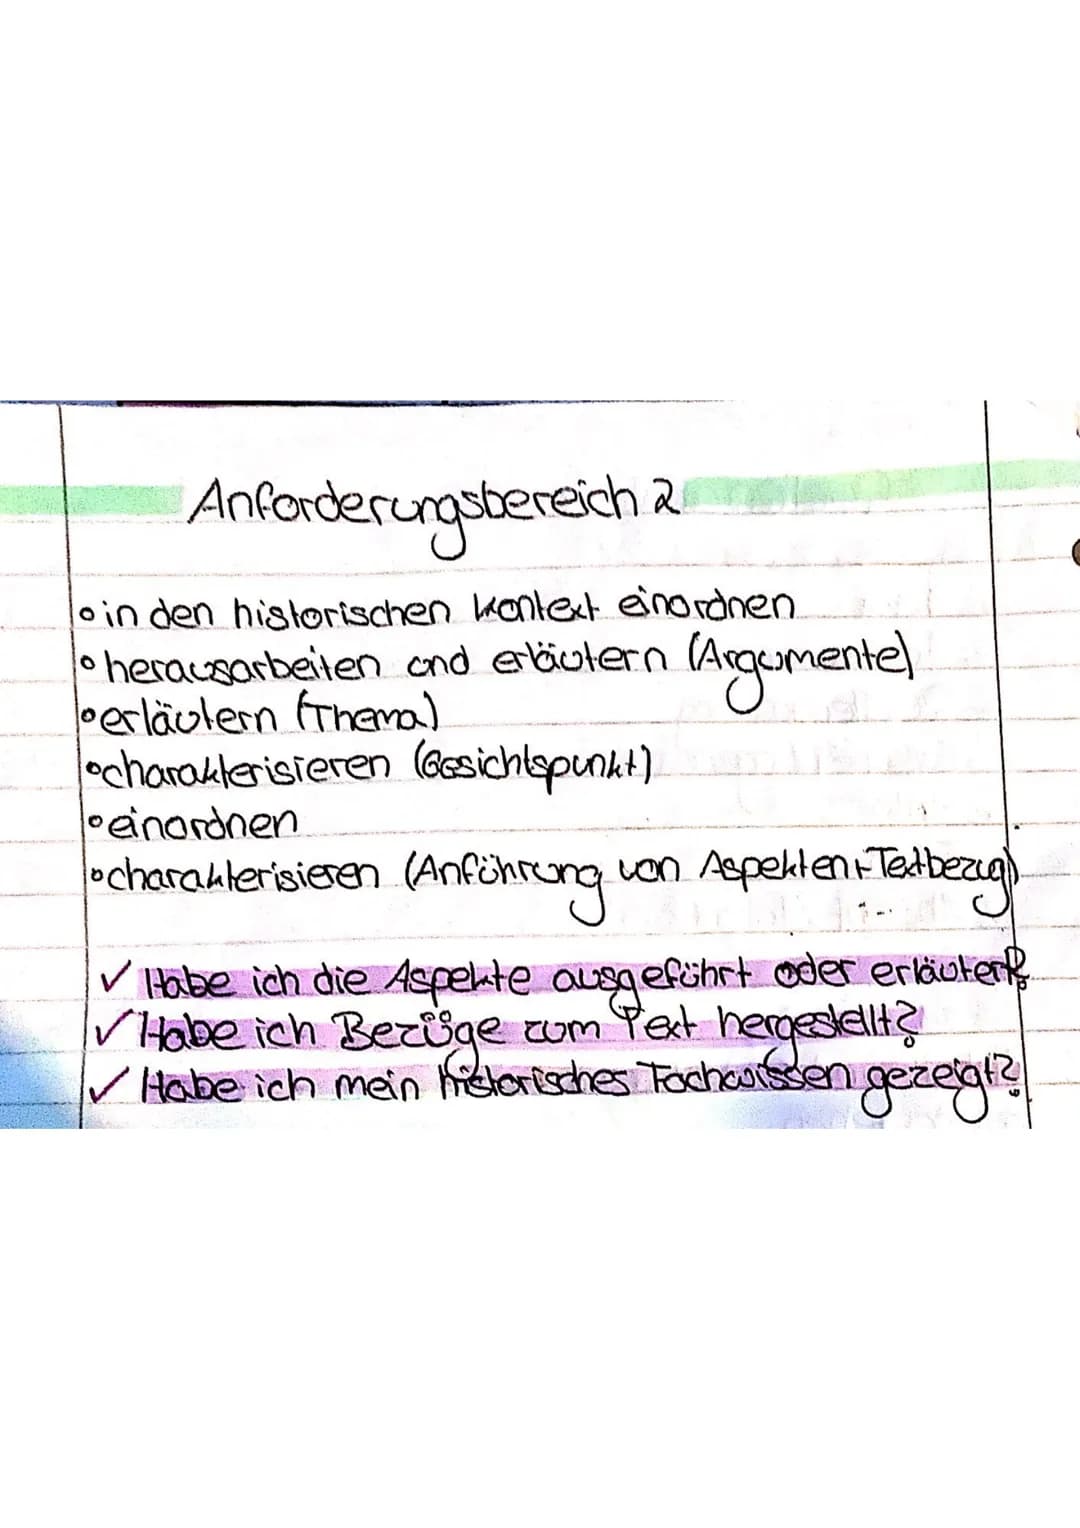 Anforderungsbereich 2
• in den historischen Kontext einordnen
• herausarbeiten und erläutern (Argumente)
• erläutern (Thema)
• charakterisieren (Gesichtspunkt)
• einordnen
• charakterisieren (Anführung von Aspekten + Textbezug)
✓ Habe ich die Aspekte ausgeführt oder erläutert?
✓ Habe ich Bezüge zum Text hergestellt?
✓ Habe ich mein historisches Fachwissen gezeigt?